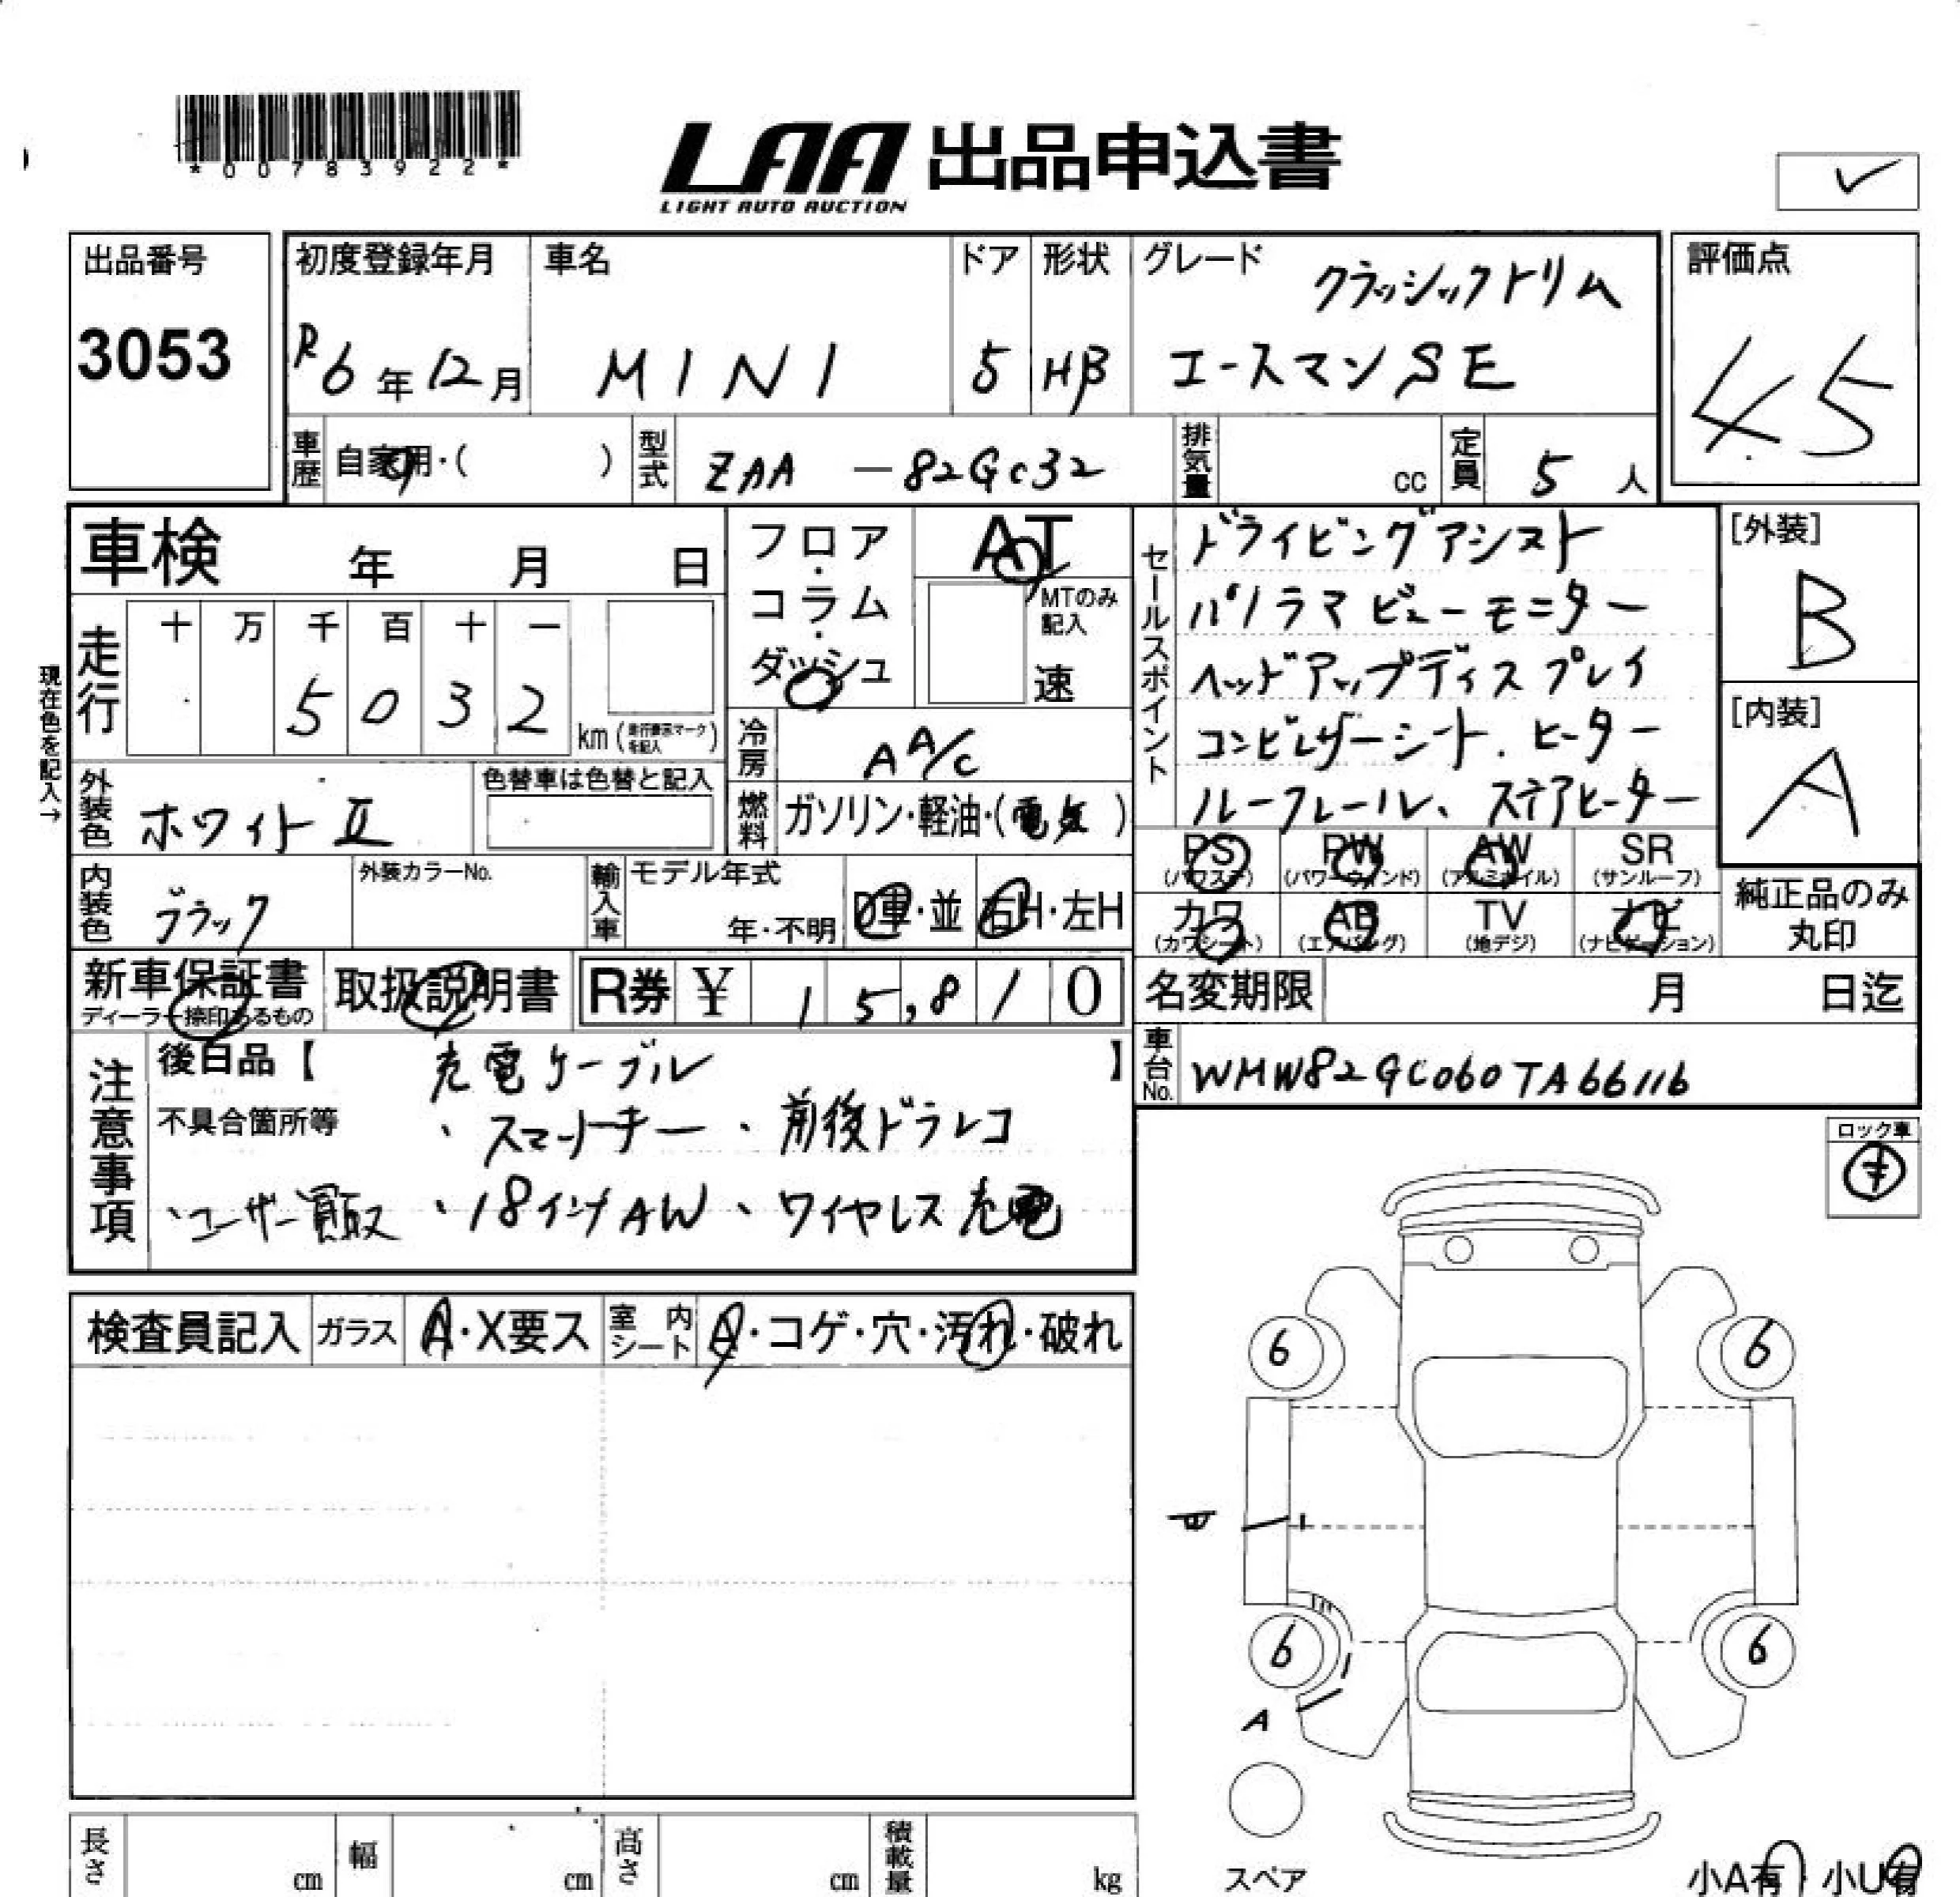 *00783922*
LAA 出品申込書
LIGHT AUTO AUCTION
出品番号
3053
初度登録年月
R6年12月
車名
MINI
ドア
5
形状
HB
グレード
クラッシックトリム
エースマンSE
評価点
45
車歴
自家用・( )
型式
ZAA -82GC32
排気量
cc
定員
5人
車検 年 月 日
走行
十 万 千 百 十 一
5 0 3 2 km(走行表示マークを記入)
現在色を記入→
フロア・コラム・ダッシュ
AT
MTのみ記入
速
冷房
AA/C
燃料
ガソリン・軽油・(電気)
外装色
ホワイトⅡ
色替車は色替と記入
内装色
ブラック
外装カラーNo.
輸入車
モデル年式
年・不明
D車・並
右H・左H
セールスポイント
ドライビングアシスト
パノラマビューモニター
ヘッドアップディスプレイ
コンビレザーシート、ヒーター
ルーフレール、ステアヒーター
[外装]
B
[内装]
A
PS
(パワステ)
PW
(パワーウィンド)
AW
(アルミホイル)
SR
(サンルーフ)
カワ
(カワシート)
AB
(エアバッグ)
TV
(地デジ)
ナビ
(ナビゲーション)
純正品のみ
丸印
新車保証書
ディーラー捺印あるもの
取扱説明書
R券 ¥ 15,810
名変期限 月 日迄
車台No.
WMW82GC060TA66116
注意事項
後日品【 充電ケーブル 】
不具合箇所等 、スマートキー、前後ドラレコ
、ユーザー買取 、18インチAW、ワイヤレス充電
ロック車
キ
検査員記入
ガラス
A・X要ス
室内シート
A・コゲ・穴・汚れ・破れ
6
6
6
6
A
スペア
長さ cm
幅 cm
高さ cm
積載量 kg
小A有 小U有